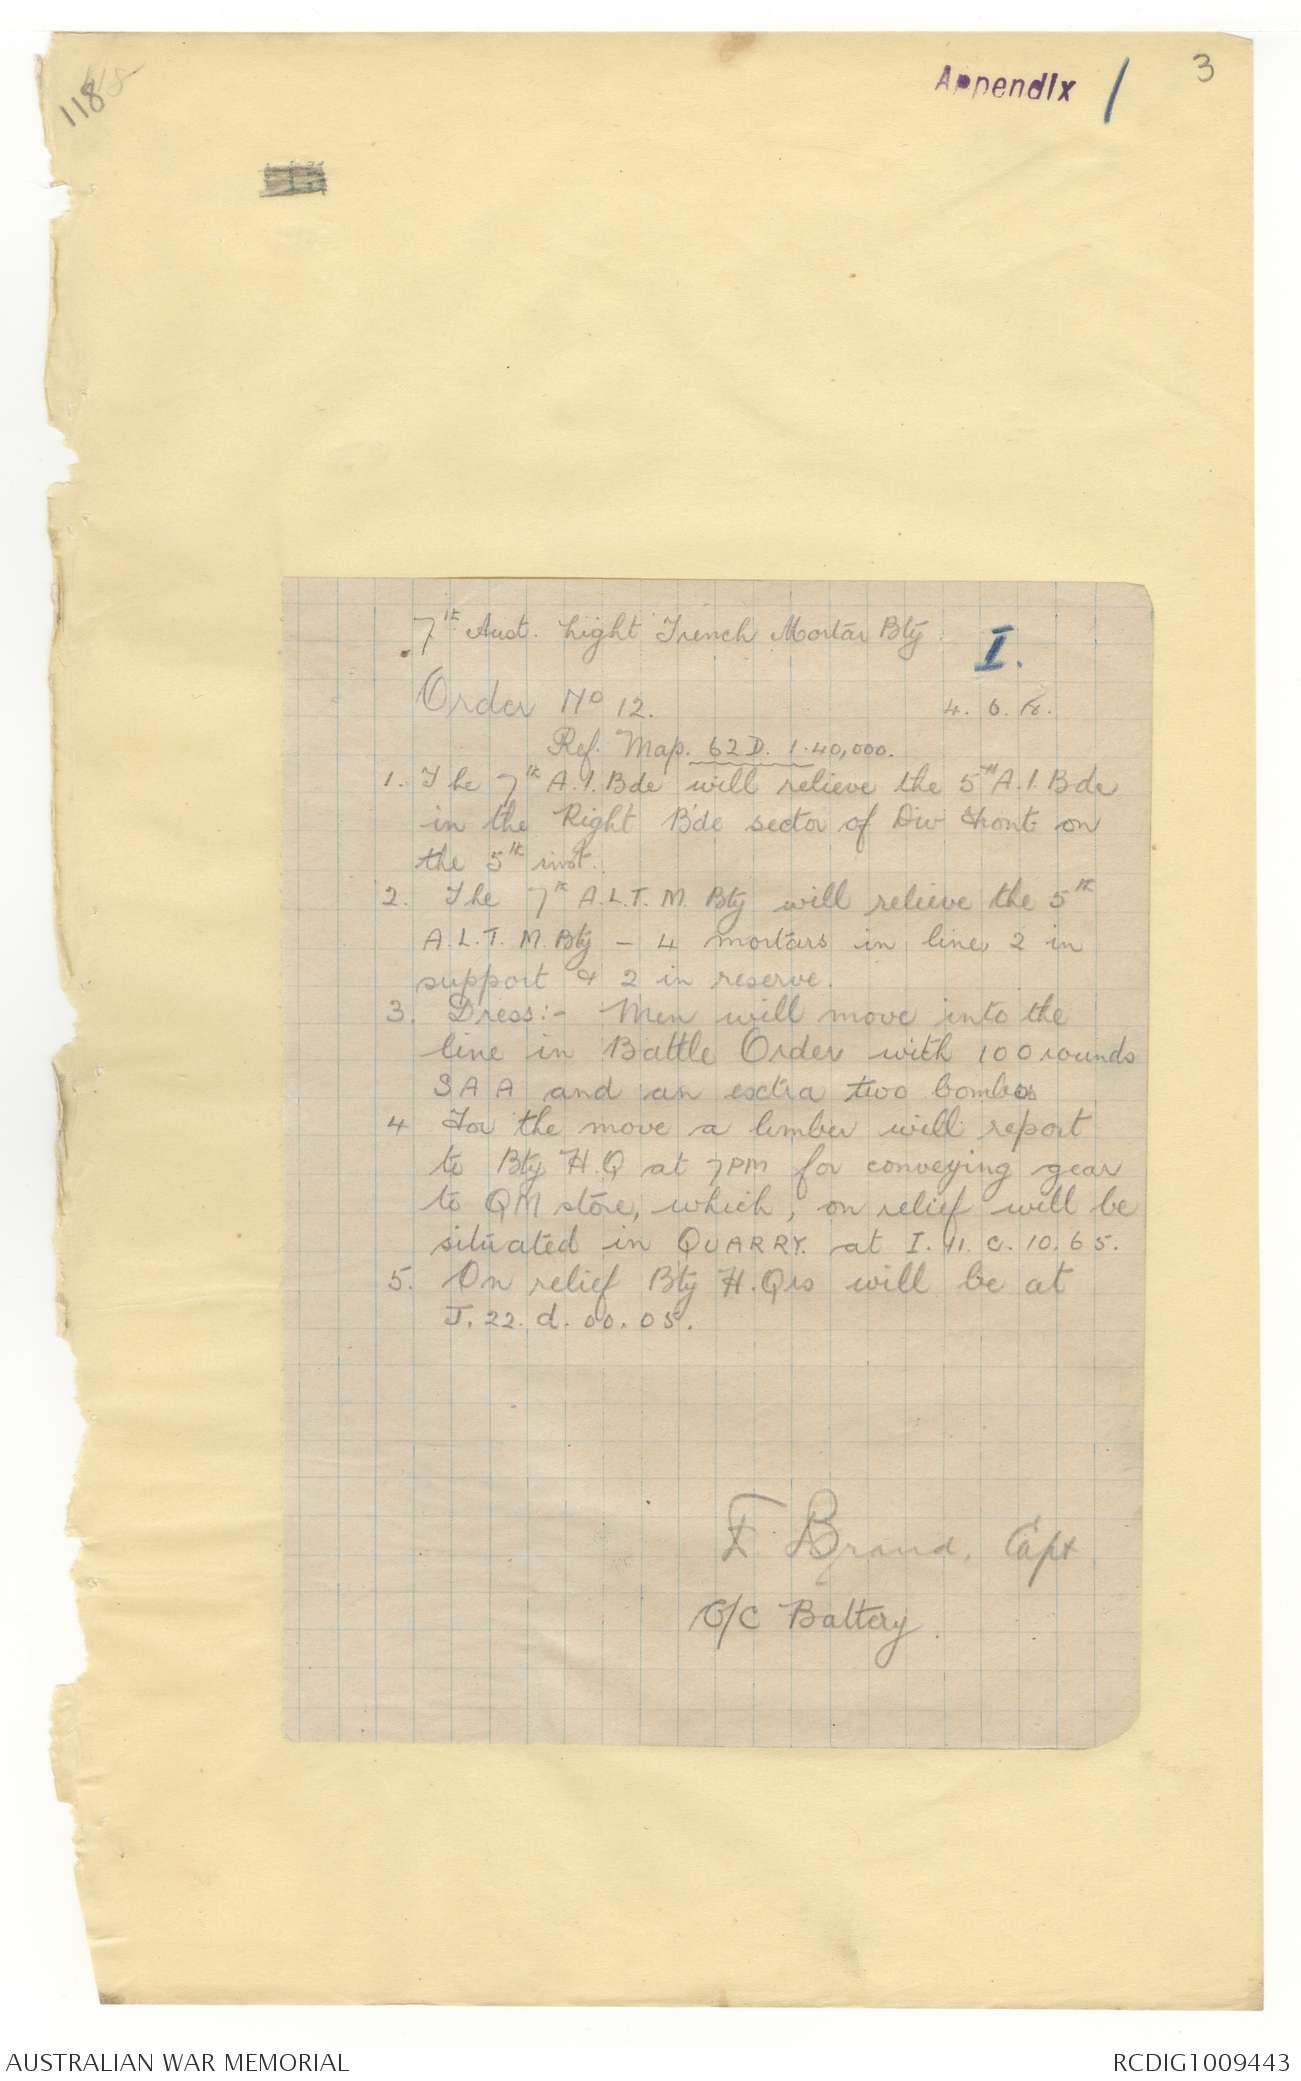 118
Appendix 1
3
7th Aust. Light Trench Mortar Bty.
I.
Order No 12. 4. 6. 18.
Ref. Map. 62D. 1.40,000.
1. The 7th A.I. Bde will relieve the 5th A.I. Bde
in the Right Bde sector of Div Front on
the 5th inst.
2. The 7th A.L.T.M. Bty will relieve the 5th
A.L.T.M. Bty - 4 mortars in line, 2 in
support & 2 in reserve.
3. Dress:- Men will move into the
line in Battle Order with 100 rounds
SAA and an extra two bombs
4 For the move a limber will report
to Bty H.Q at 7PM for conveying gear
to QM store, which, on relief will be
situated in QUARRY. at I.11.c.10.65.
5. On relief Bty H.Qrs will be at
J.22.d.00.05.
F Brand, Capt
O/C Battery.
AUSTRALIAN WAR MEMORIAL
RCDIG1009443